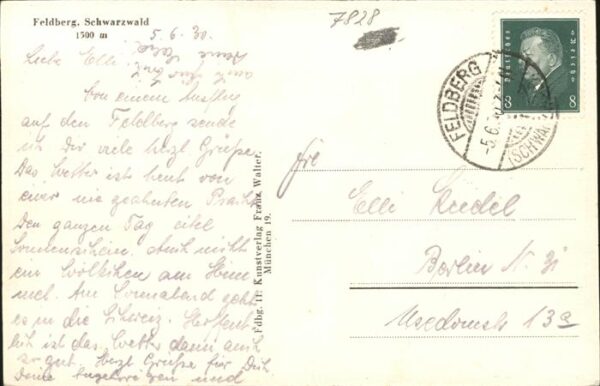 Feldberg, Schwarzwald
1500 m
7828
5.6.30.
Liebe Elli!
Von einem Ausflug
auf den Feldberg sende
ich Dir viele herzl. Grüße.
Das Wetter ist heut von
einer nie geahnten Pracht
Den ganzen Tag eitel
Sonnenschein. Auch nicht
ein Wölkchen am Him
mel. Am Sonnabend geht
es in die Schweiz. Hoffent
lich ist das Wetter dann auch
so gut. Herzl. Grüße für Dich
Deine Angehörigen und
Fdbg. 11. Kunstverlag Franz Walter,
München 19.
Deutsches Reich
8 8
FELDBERG
-5.6.
(SCHWA
Frl.
Elli
Berlin N. 31
Usedomstr 13a